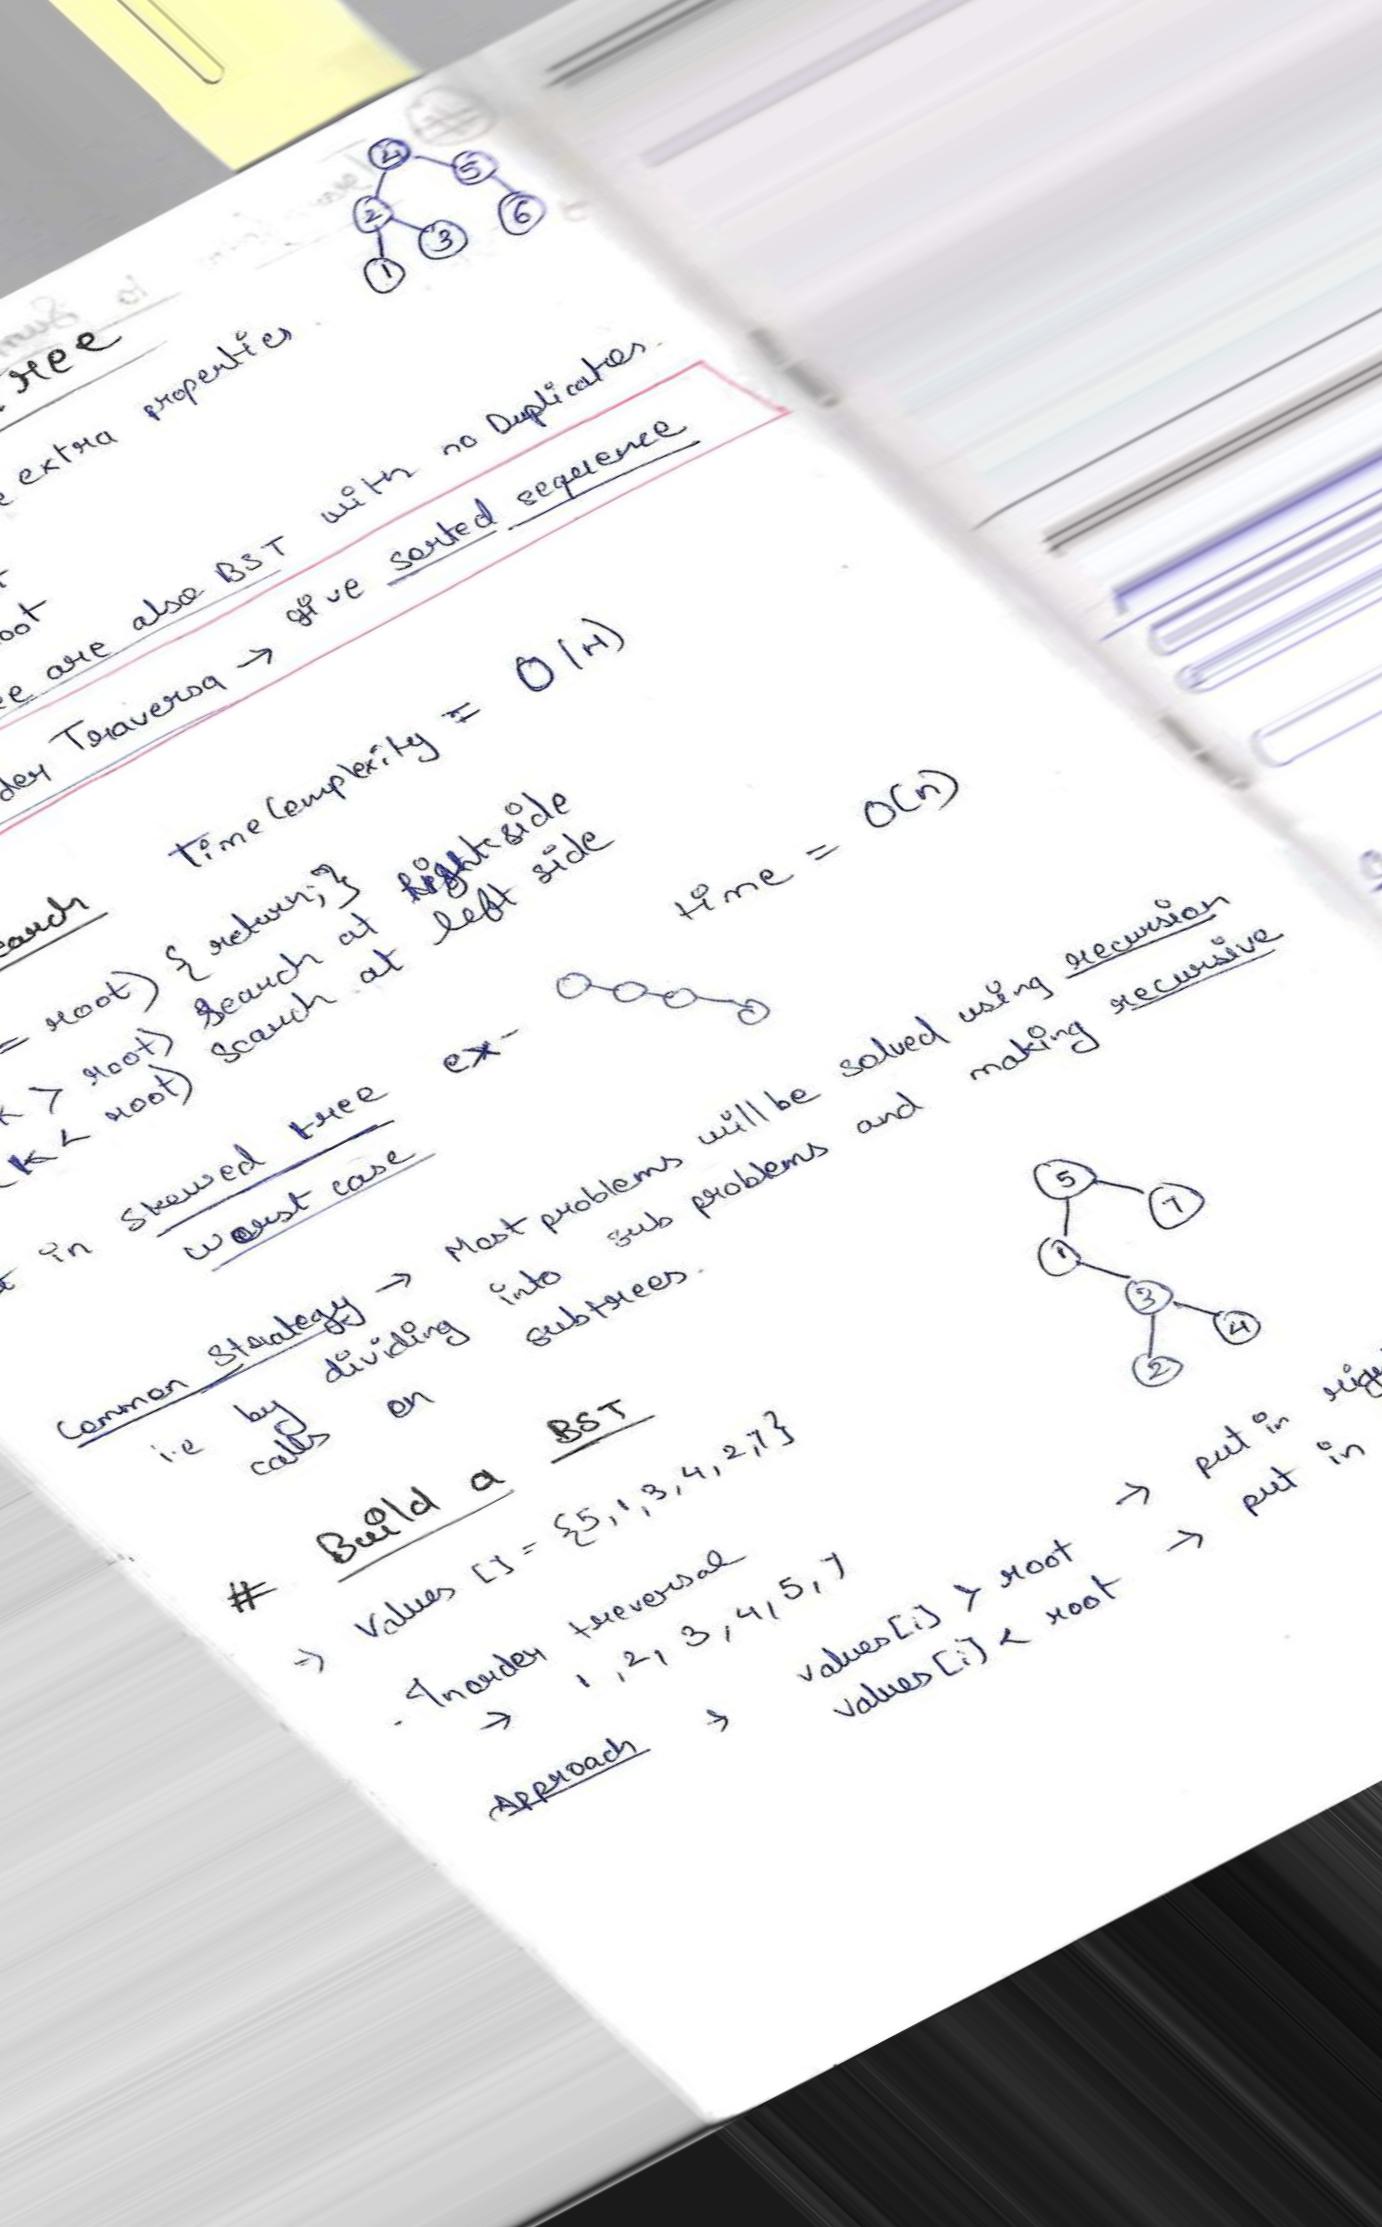 4 5
2 3 6
1
extra properties
oot
are also BST with no Duplicates.
Traversa → give sorted sequence
Time Complexity = O(H)
= root) { return; }
K > root) Search at Right side
(K < root) Search at left side
in Skewed tree ex- time = O(n)
worst case
Common Strategy → Most problems will be solved using recursion
i.e by dividing into sub problems and making recursive
calls on subtrees.
5 7
1
3
2 4
# Build a BST
→ Values [] = {5, 1, 3, 4, 2, 7}
Inorder treversal
→ 1, 2, 3, 4, 5, 7
Approach → values[i] > root → put in
values[i] < root → put in